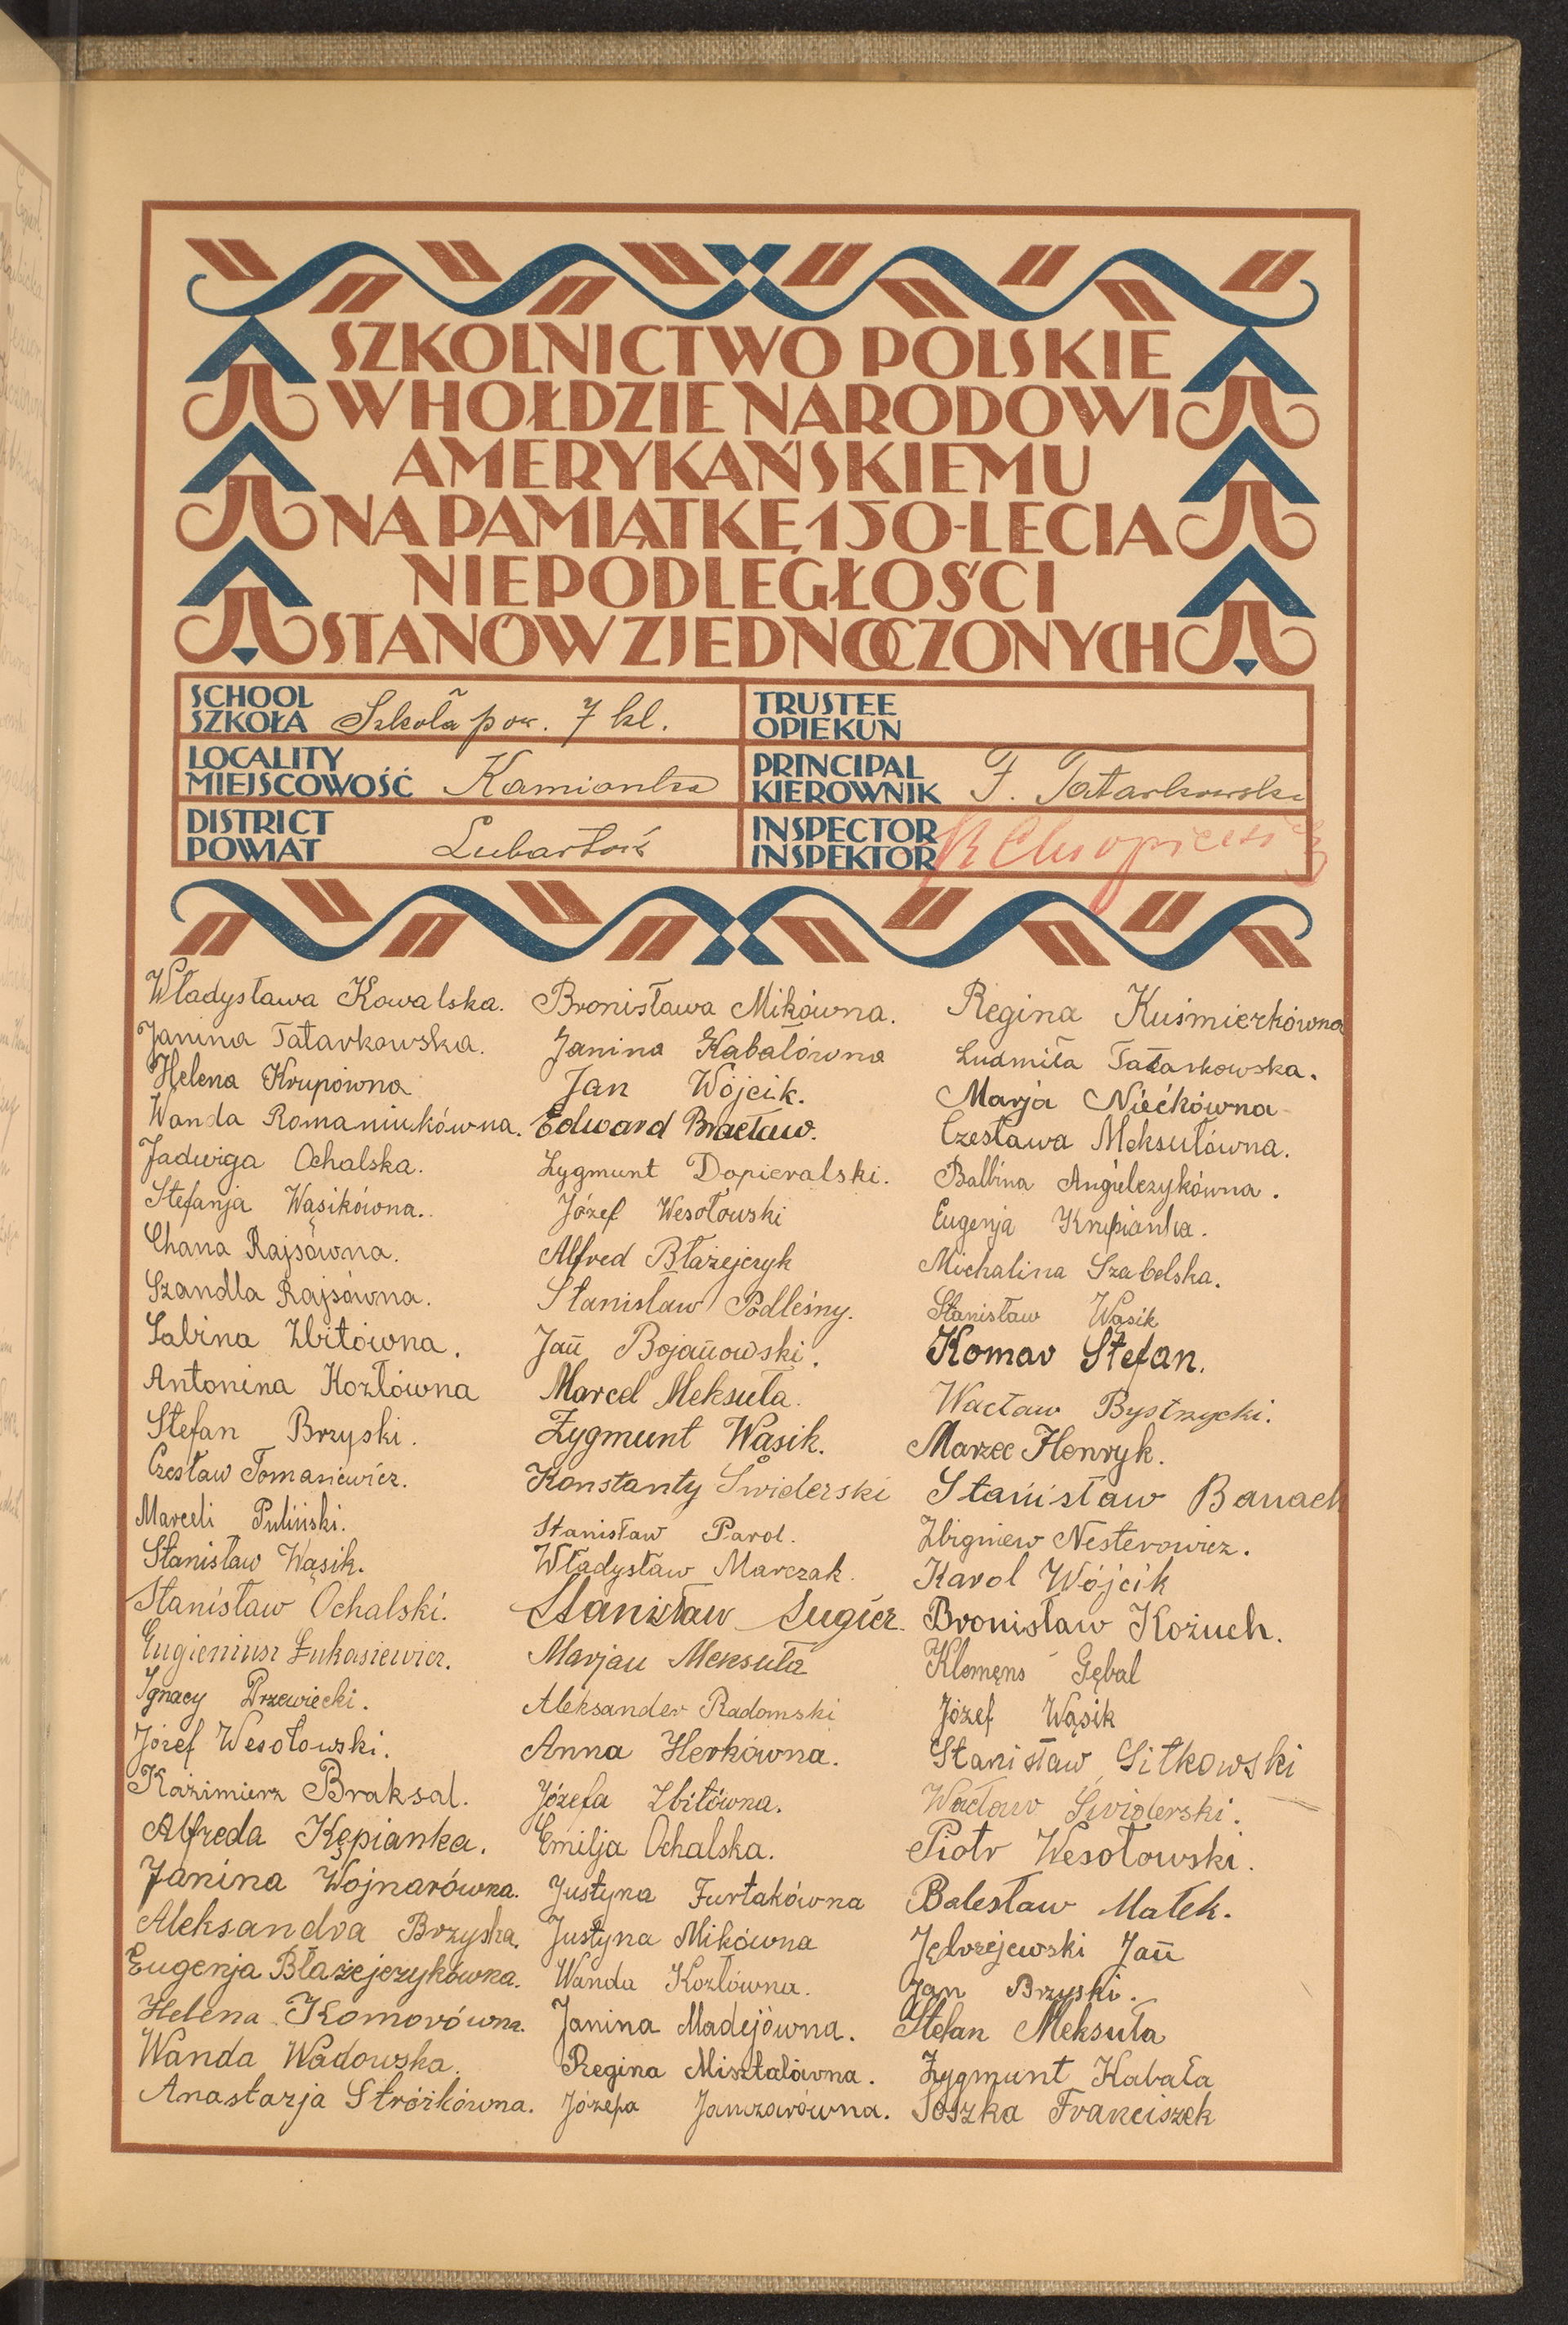 SZKOLNICTWO POLSKIE
W HOŁDZIE NARODOWI
AMERYKAŃSKIEMU
NA PAMIĄTKĘ 150-LECIA
NIEPODLEGŁOŚCI
STANÓW ZJEDNOCZONYCH
SCHOOL
SZKOŁA Szkoła pow. 7 kl.
LOCALITY
MIEJSCOWOŚĆ Kamionka
DISTRICT
POWIAT Lubartów
TRUSTEE
OPIEKUN
PRINCIPAL
KIEROWNIK F. Tatarkowski
INSPECTOR
INSPEKTOR
Władysława Kowalska.
Janina Tatarkowska.
Helena Krupówna
Wanda Romaniukówna.
Jadwiga Ochalska.
Stefanja Wąsikówna.
Chana Rajsówna.
Szandla Rajsówna.
Sabina Zbitówna.
Antonina Kozłówna
Stefan Brzyski.
Czesław Tomasiewicz.
Marceli Puliński.
Stanisław Wąsik.
Stanisław Ochalski.
Eugieniusz Łukasiewicz.
Ignacy Drzewiecki.
Józef Wesołowski.
Kazimierz Braksal.
Alfreda Kępianka.
Janina Wojnarówna.
Aleksandra Brzyska.
Eugenja Błażejczykówna.
Helena Komorówna.
Wanda Wadowska.
Anastazja Stróżkówna.
Bronisława Mikówna.
Janina Kabałówna
Jan Wójcik.
Edward Bracław.
Zygmunt Dopieralski.
Józef Wesołowski
Alfred Błażejczyk
Stanisław Podleśny.
Jan Bojanowski.
Marcel Meksuła.
Zygmunt Wąsik.
Konstanty Świderski
Stanisław Parol.
Władysław Marczak.
Stanisław Sugier.
Marjan Meksuła
Aleksander Radomski
Anna Herkówna.
Józefa Zbitówna.
Emilja Ochalska.
Justyna Furtakówna
Justyna Mikówna
Wanda Kozłówna.
Janina Madejówna.
Regina Misztalówna.
Józefa Janczarówna.
Regina Kuśmierkówna
Ludmiła Tatarkowska.
Marja Niećkówna
Czesława Meksułówna.
Balbina Angielczykówna.
Eugenja Krępianka.
Michalina Szabelska.
Stanisław Wąsik
Komar Stefan.
Wacław Bystrzycki.
Marzec Henryk.
Stanisław Banach
Zbigniew Nesterowicz.
Karol Wójcik
Bronisław Kożuch.
Klemens Gębal
Józef Wąsik
Stanisław Sitkowski
Wacław Świderski.
Piotr Wesołowski.
Bolesław Małek.
Jędrzejewski Jan
Jan Brzyski.
Stefan Meksuła
Zygmunt Kabała
Soszka Franciszek